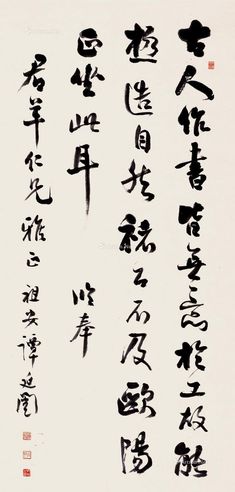 古人作書皆無意於工故能
極造自然褚公不及歐陽
正坐此耳 臨奉
君羊仁兄雅正 祖安譚延闓